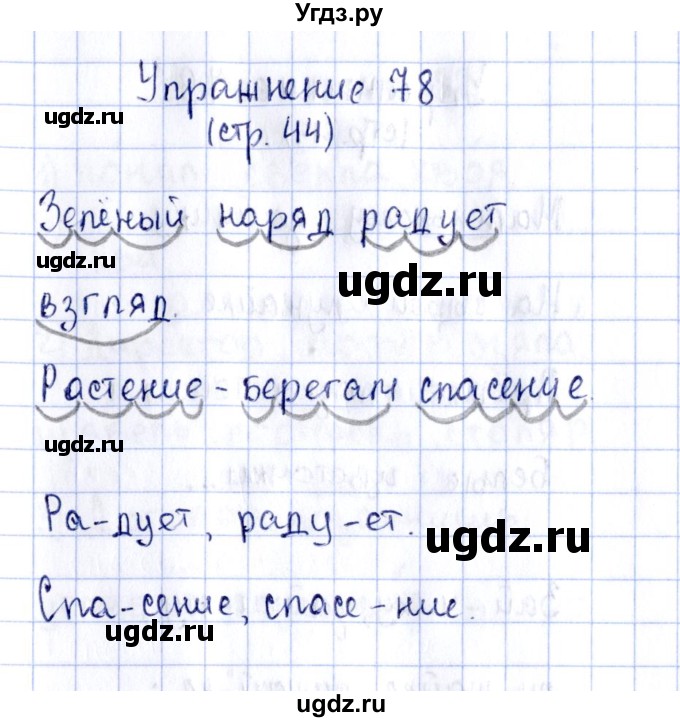 Угдз.ру
Упражнение 78
ugdz.ru
(стр. 44)
Зелёный наряд радует
ugdz.ru
ugdz.ru
взгляд.
Растение - берегам спасение.
ugdz.ru
Ра-дует, раду-ет.
ugdz.ru
Спа-сение, спасе-ние.
ugdz.ru
ugdz.ru